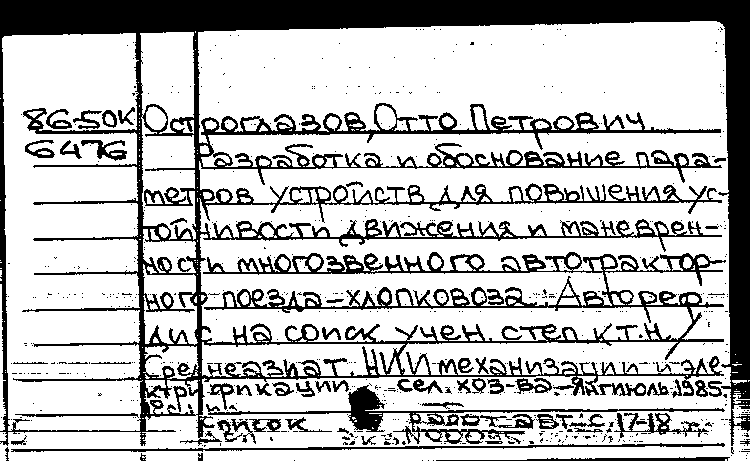 86-50К Остроглазов, Отто Петрович.
6476 Разработка и обоснование пара-
метров устройств для повышения ус-
тойчивости движения и маневрен-
ности многозвенного автотрактор-
ного поезда-хлопковоза : Автореф.
дис на соиск учен. степ к.т.н. /
Среднеазиат. НИИ механизации и эле-
ктрификации сел. хоз-ва.-Янгиюль, 1985.
Список работ авт.: с. 17-18